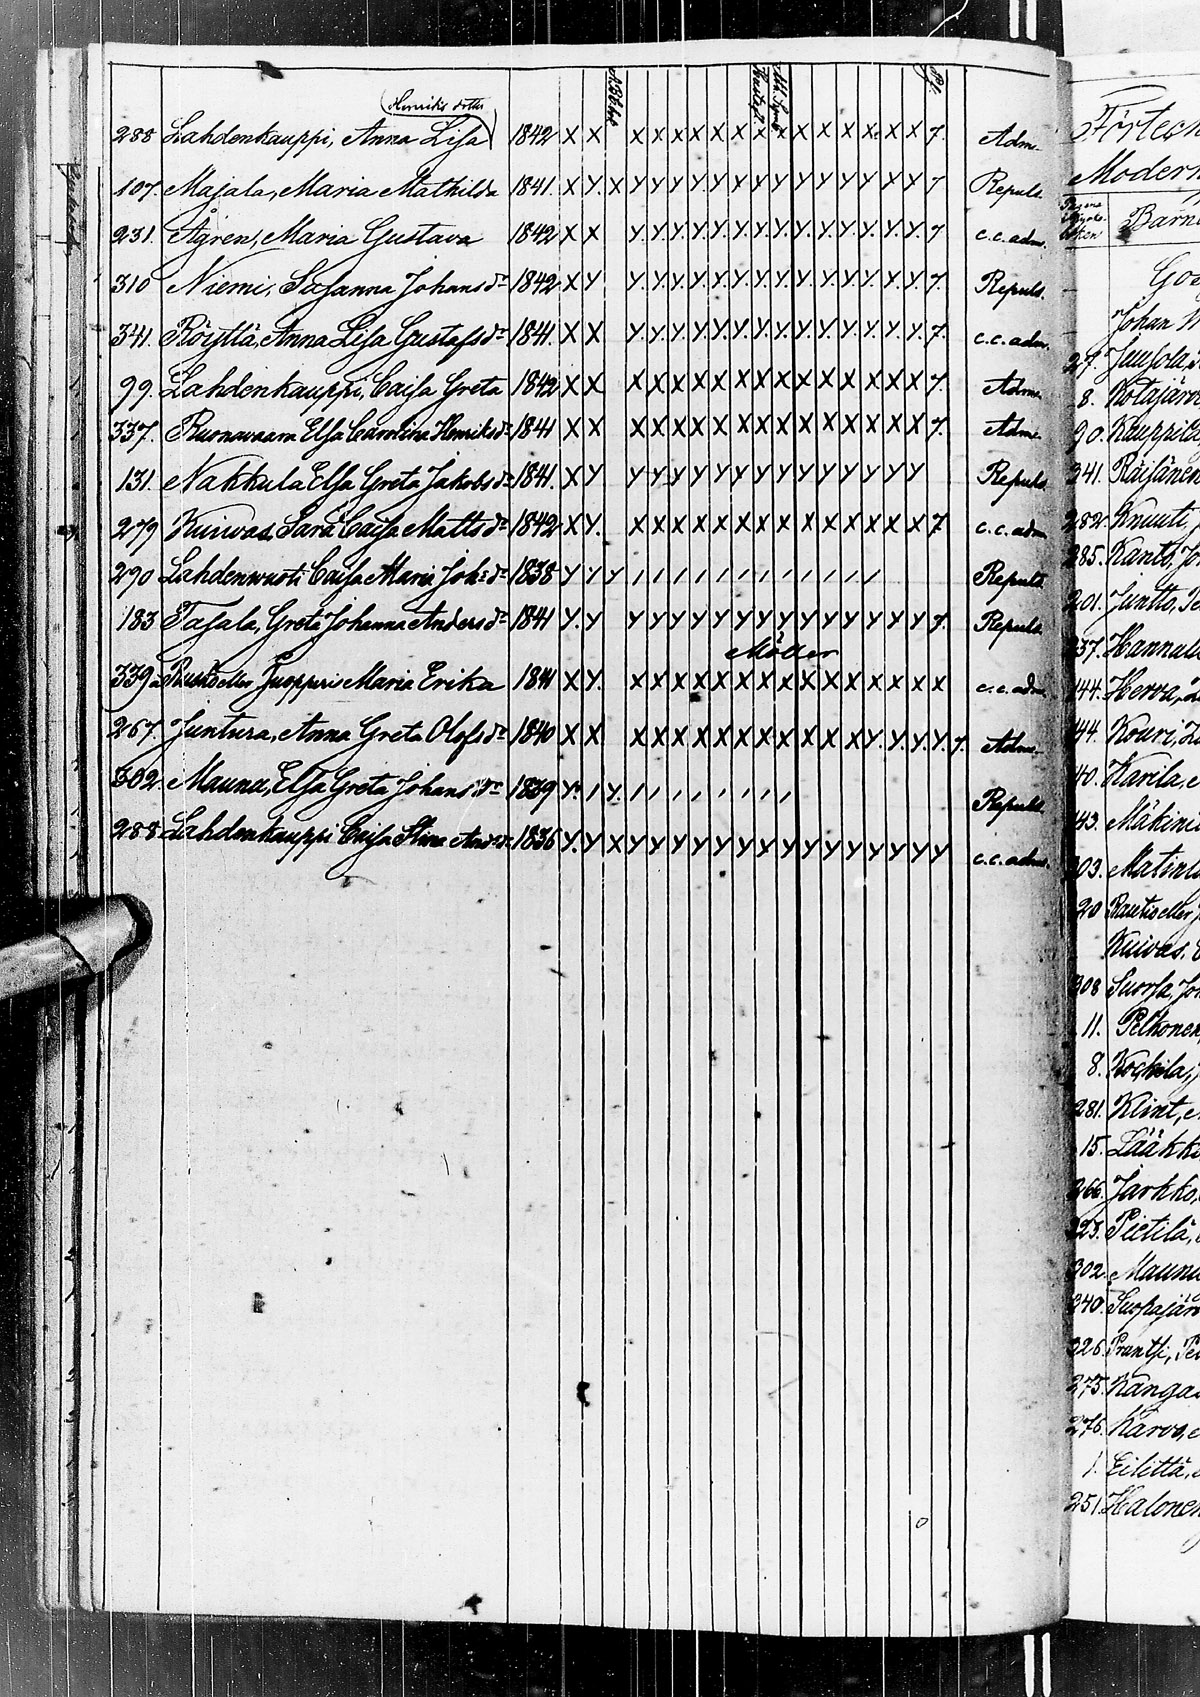 Henriks dotter
288 Lahdenkauppi, Anna Lisa 1842 X X X X X X X X X X X X X X X X 7. Adm.
107. Majala, Maria Mathilda 1841. X Y X Y Y Y Y Y Y Y Y Y Y Y Y Y Y 7 Repuls.
231. Ågren, Maria Gustava 1842 X X Y Y Y Y Y Y Y Y Y Y Y Y Y Y 7 c.c. adm.
310 Niemi, Susanna Johans dr 1842 X X Y Y Y Y Y Y Y Y Y Y Y Y X Y 7. Repuls.
341. Röyttä, Anna Lisa Gustafs dr 1841. X X Y Y Y Y Y Y Y Y Y Y Y Y Y Y 7. c.c. adm.
99. Lahdenkauppi, Caisa Greta 1842 X X X X X X X X X X X X X X X X 7. Adm.
337. Ruonavaara Elsa Carolina Henriks dr 1841 X X X X X X X X X X X X X X X X 7. Adm.
131. Nakkula Elsa Greta Jakobs dr 1841. X Y Y Y Y Y Y Y Y Y Y Y Y Y Y Y Repuls.
279 Kuivas, Sara Caisa Matts dr 1842 X Y. X X X X X X X X X X X X X X 7 c.c. adm.
290 Lahdenvuoti Caisa Maria Joh: dr 1838 Y Y Y / / / / / / / / / / / / Repuls.
183 Tasala, Greta Johanna Anders dr 1841 Y. Y Y Y Y Y Y Y Y Y Y Y Y Y Y Y 7. Repuls.
Möller
339 a Rusko eller Juopperi Maria Erika 1841 X Y. X X X X X X X X X X X X X X X c.c. adm.
267. Juntura, Anna Greta Olofs dr 1840 X X X X X X X X X X X X X Y. Y. Y. Y. 7. Adm.
302. Mauna, Elsa Greta Johans dr 1839 Y. / Y. / / / / / / / / Repuls.
288 Lahdenkauppi Caisa Stina And. dr 1836 Y. Y X Y Y Y Y Y Y X Y Y Y Y Y Y Y Y c.c. adm.
0
Förtec
Modern
Barn
Johan W
27. Juusola,
8. Kotajärv
90. Kauppila,
241. Räisänen
282. Knuuti,
285. Kantt, Jo
201. Juntto, Pe
237. Hannula
144. Herva,
144. Kouri,
40. Karila,
143. Mäkine
303. Matin
20 Rautio eller J
Kuivas.
308 Suorsa, Jo
11. Pelkonen,
8. Kockila, J
281. Klint,
15. Lääkkö
266. Jarkko,
223. Pietilä,
302. Maunu
240. Suopajär
326. Prantti, Pe
275. Kanga
276. Karvo,
1. Eilittä,
251. Halonen